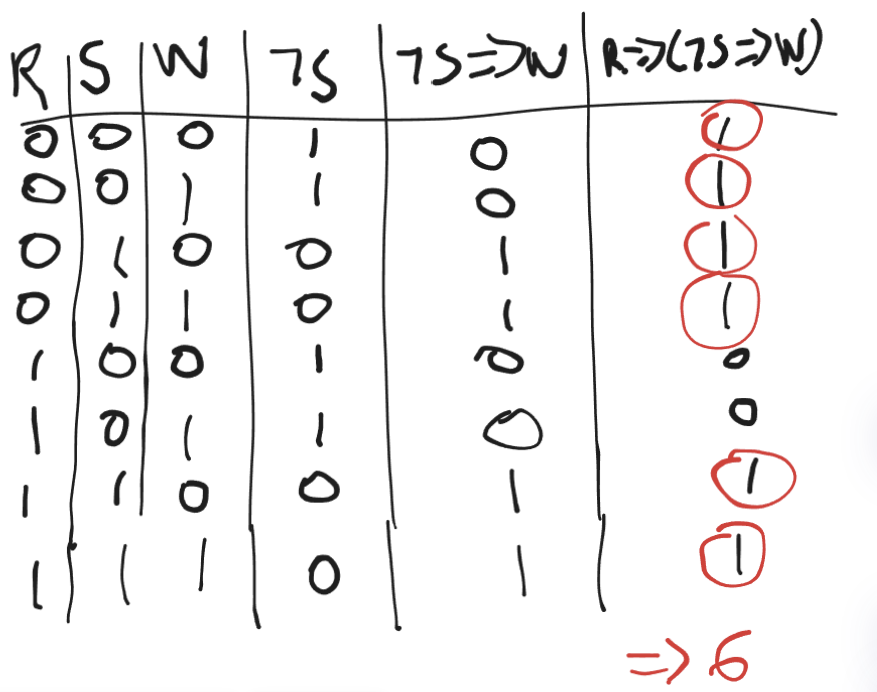 R S W ¬S ¬S=>W R=>(¬S=>W)
0 0 0 1 0 1
0 0 1 1 0 1
0 1 0 0 1 1
0 1 1 0 1 1
1 0 0 1 0 0
1 0 1 1 0 0
1 1 0 0 1 1
1 1 1 0 1 1
=> 6